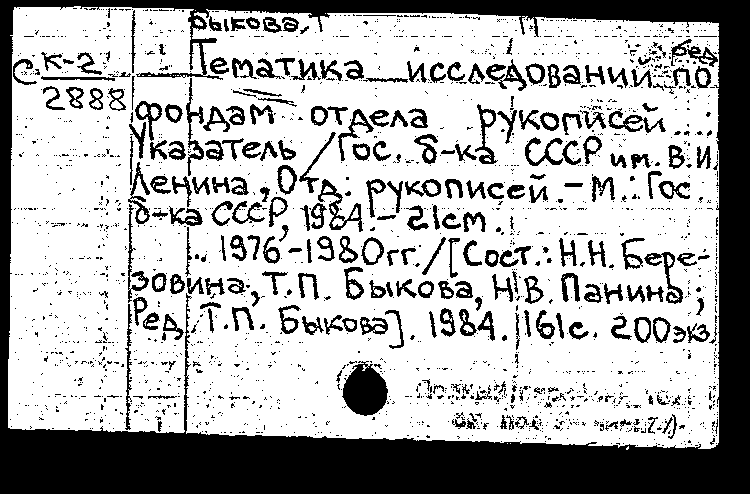 Быкова, Т П
ред
С К-2 Тематика исследований по
2888 фондам отдела рукописей ...:
Указатель / Гос. б-ка СССР им. В.И.
Ленина, Отд. рукописей. - М.: Гос.
б-ка СССР, 1984. - 21см.
.. 1976-1980гг. / [Сост.: Н.Н. Бере-
зовина, Т.П. Быкова, Н.В. Панина;
Ред. Т.П. Быкова]. 1984. 161с. 200экз.
Полный
см. под